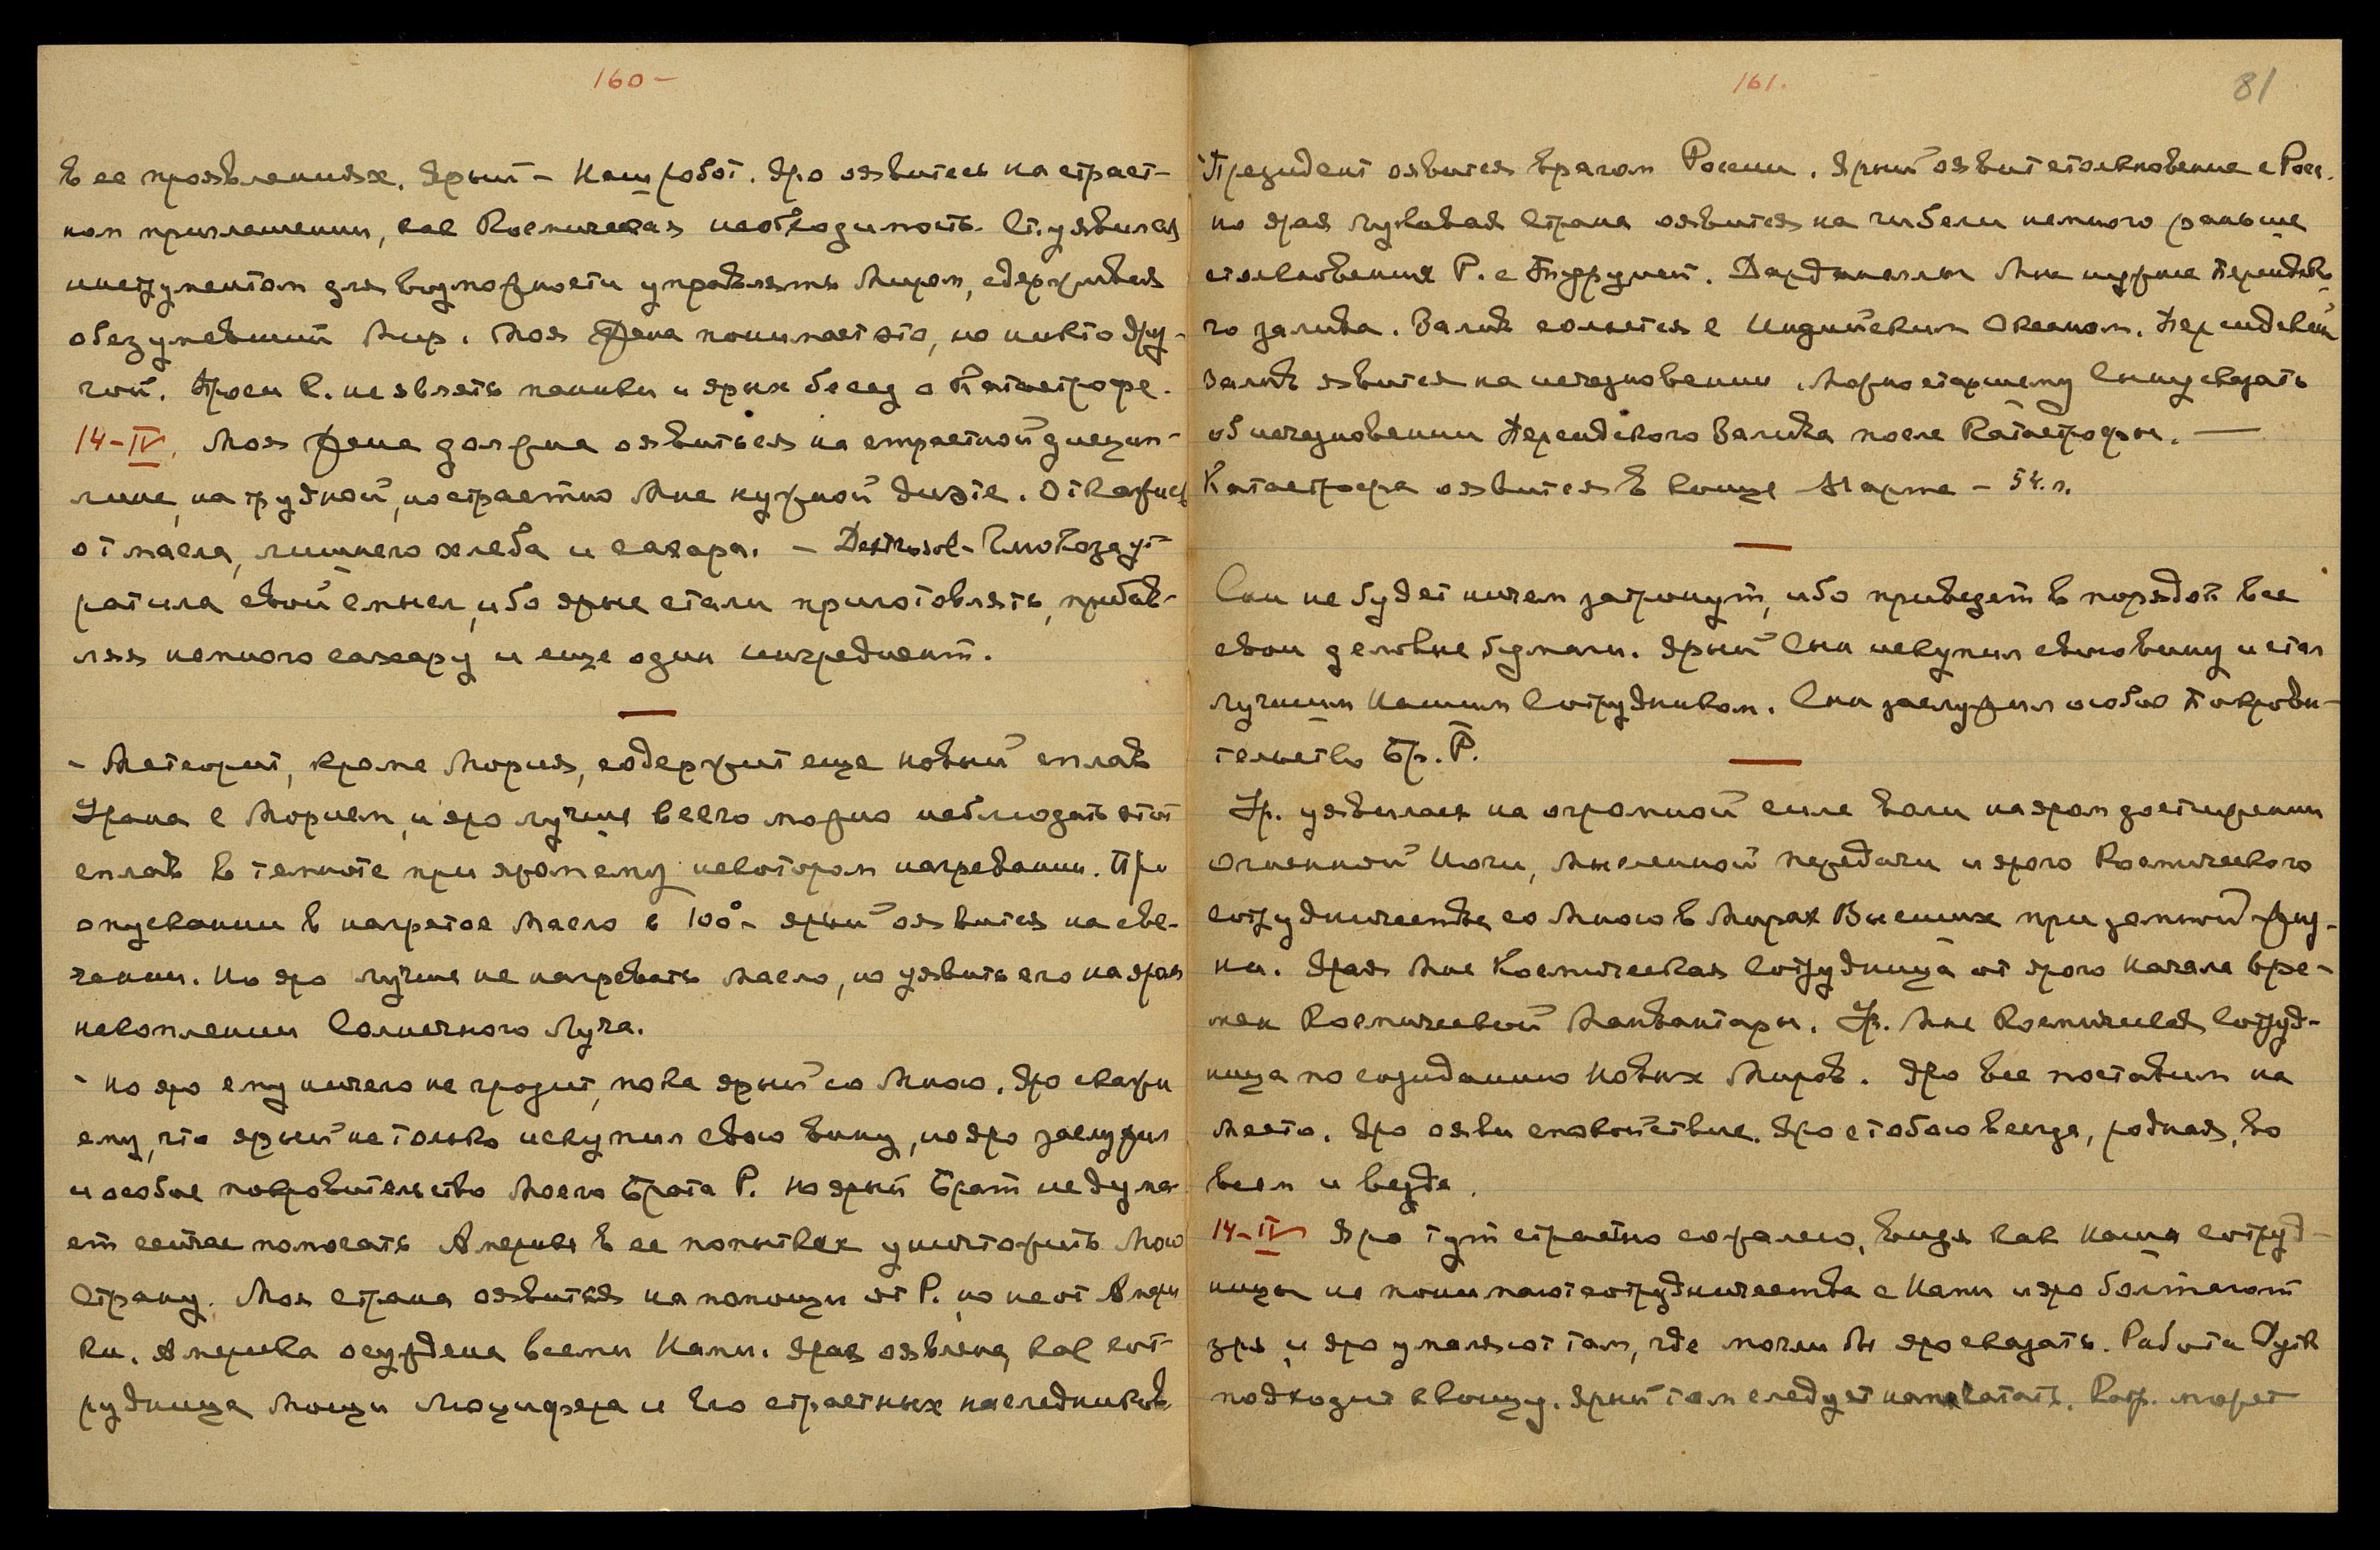 160 –
в ее проявлениях. Ярый – Наш робот. Яро оявитесь на страст-
ном приглашении, как Космическая необходимость. Ст. уявился
инструментом для возможности управлять Миром, сдерживая
обезумевший Мир. Моя Жена понимает это, но никто дру-
гой. Проси К. не являть паники и ярых бесед о Катастрофе.
14–IV. Моя Жена должна оявиться на страстной дисцип-
лине, на трудной, но страстно Мне нужной диэте. Откажись
от масла, лишнего хлеба и сахара. – Dextrosol – Глюкоза ут-
ратила свой смысл, ибо ярые стали приготовлять, прибав-
ляя немного сахару и еще один ингредиент.
– Метеорит, кроме Мория, содержит еще новый сплав
Урана с Морием, и яро лучше всего можно наблюдать этот
сплав в темноте при яром ему некотором нагревании. При
опускании в нагретое масло в 100° – ярый оявится на све-
чении. Но яро лучше не нагревать масло, но уявить его на ярая
накоплении Солнечного Луча.
– Но яро ему ничего не грозит, пока ярый со Мною. Яро скажи
ему, что ярый не только искупил свою вину, но яро заслужил
и особое покровительство Моего Брата Р. Но ярый Брат не дума-
ет сейчас помогать Америке в ее попытках уничтожить Мою
Страну. Моя страна оявится на помощи от Р., но не от Амери
ки. Америка осуждена всеми Нами. Ярая оявлена, как сот-
рудница Мощи Люцифера и Его страстных наследников
161.
81
Президент оявится врагом России. Ярый оявит столкновение с Росс.
но ярая лукавая Страна оявится на гибели немного раньше
столкновения Р. с Подругой. Дарданеллы Мне нужнее Персидско-
го залива. Залив сольется с Индийским Океаном. Персидский
Залив явится на исчезновении. Можно старшему Сыну сказать
об исчезновении Персидского Залива после Катастрофы. —
Катастрофа оявится в конце Марта – 54. г.
Сын не будет ничем затронут, ибо приведет в порядок все
свои деловые бумаги. Ярый Сын искупил свою вину и стал
лучшим Нашим Сотрудником. Сын заслужил особое Покрови-
тельство Бр. Р.
Ур. уявилась на огромной силе воли на яром достижении
огненной Йоги, мысленной передачи и ярого Космического
сотрудничества со Мною в Мирах Высших при земной жиз-
ни. Ярая Мне Космическая Сотрудница от ярого начала вре-
мен Космической Манвантары. Ур. Мне Космическая Сотруд-
ница по созиданию Новых Миров. Яро все поставим на
место. Яро ояви спокойствие. Яро с тобою всегда, родная, во
всем и везде.
14–IV Яро тут страстно сожалею, видя как Наши сотруд-
ницы не понимают сотрудничества с Нами и яро болтают
зря, и яро умаляют там, где могли бы яро сказать. Работа
подходит к концу. Ярый том следует напечатать. может